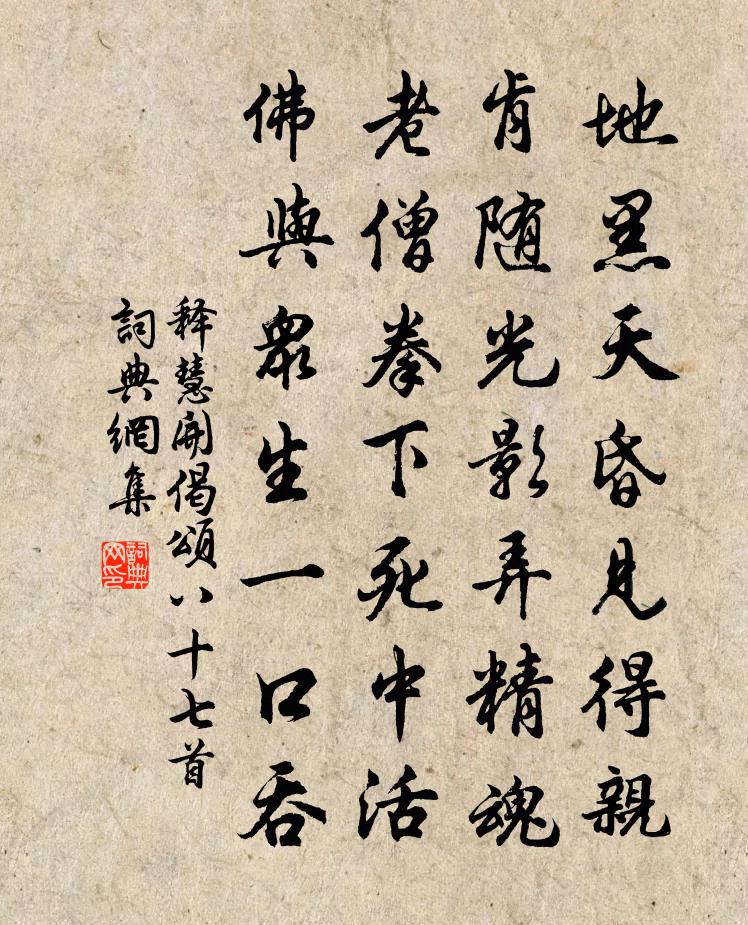 地黑天昏見得親
肯随光影弄精魂
老僧拳下死中活
佛與眾生一口吞
释慧開偈頌八十七首
詞典網集
詞典
网印